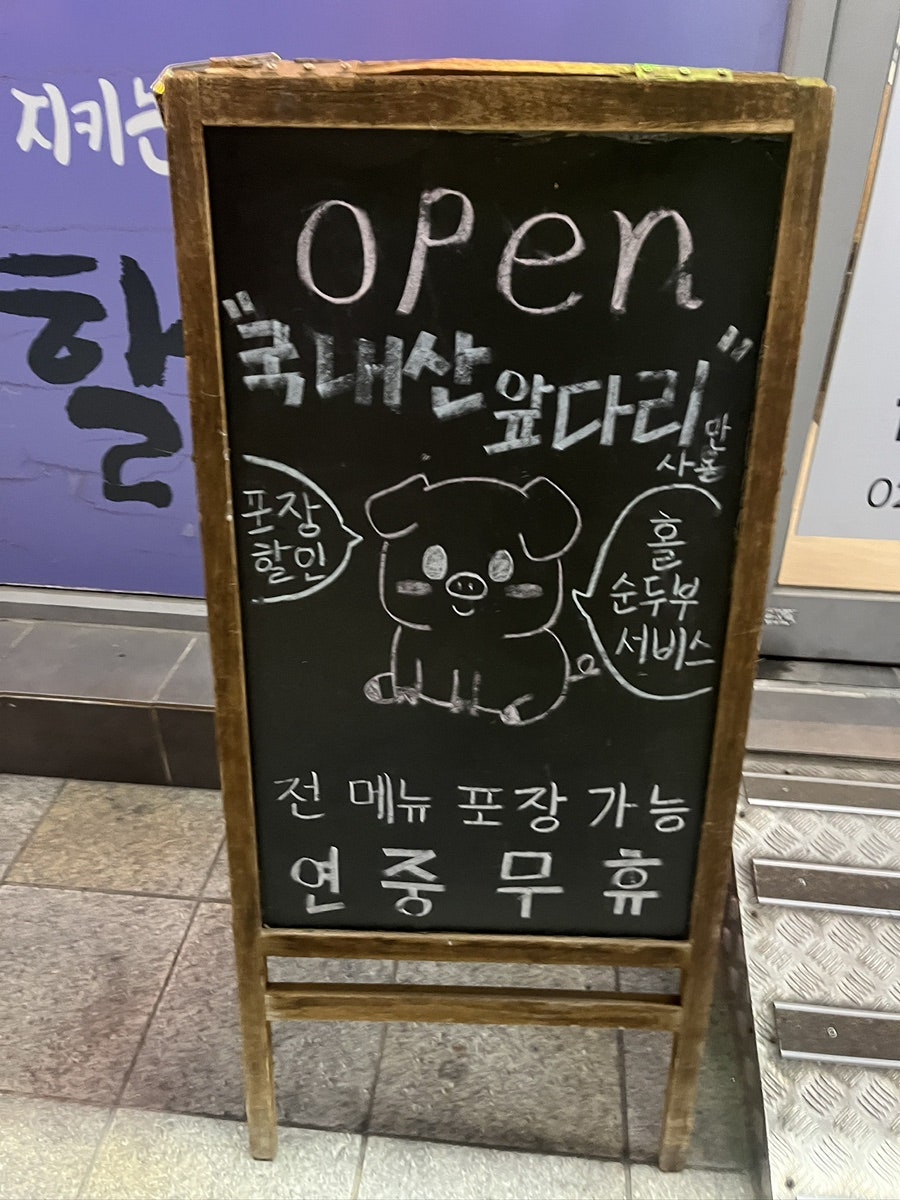 지키는
할
open
"국내산 앞다리"만
사용
포장
할인
홀
순두부
서비스
전 메뉴 포장 가능
연중무휴
02